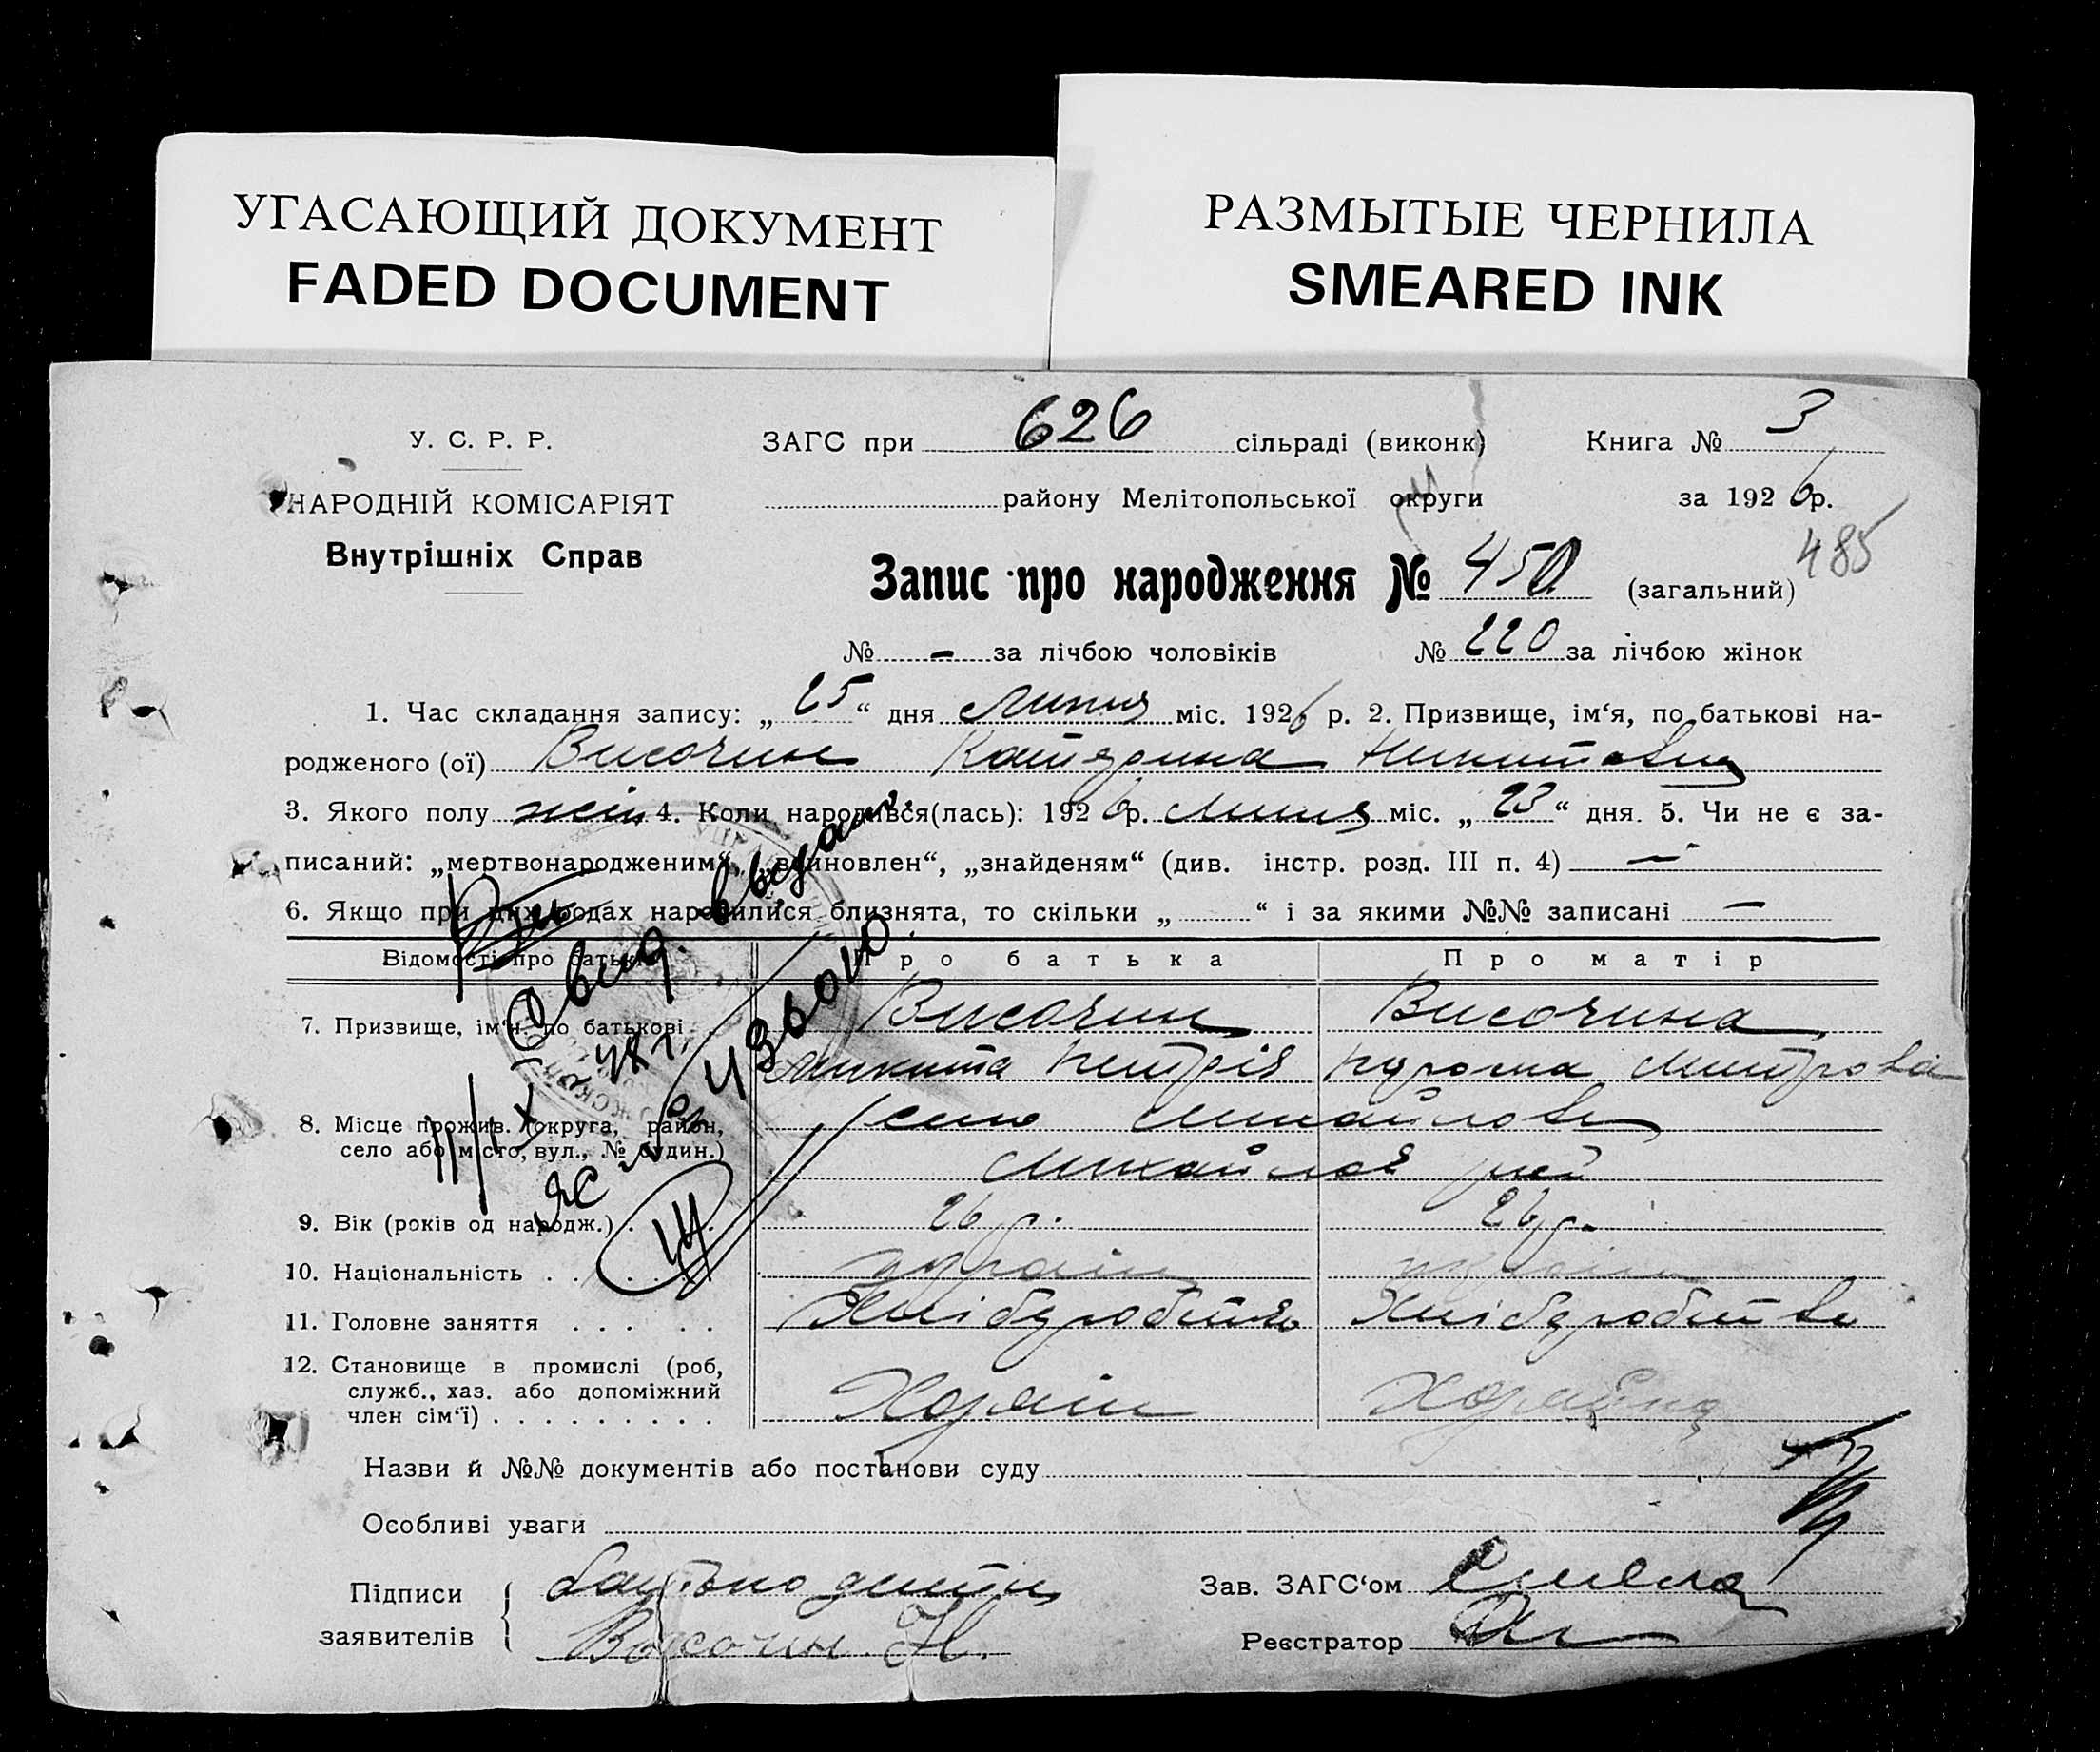 УГАСАЮЩИЙ ДОКУМЕНТ
FADED DOCUMENT
РАЗМЫТЫЕ ЧЕРНИЛА
SMEARED INK
У. С. Р. Р.
НАРОДНІЙ КОМІСАРІЯТ
Внутрішніх Справ
ЗАГС при 626 сільраді (виконк) Книга № 3
району Мелітопольської округи за 1926 р.
485
Запис про народження № 450 (загальний)
№ - за лічбою чоловіків № 220 за лічбою жінок
1. Час складання запису: „25“ дня Липня міс. 1926 р. 2. Призвище, ім‘я, по батькові на-
родженого (ої) Височин Катерина Никитовна
3. Якого полу жін 4. Коли народився(лась): 1926 р. Липня міс. „23“ дня. 5. Чи не є за-
писаний: „мертвонародженим“, „всиновлен“, „знайденям“ (див. інстр. розд. III п. 4) —
6. Якщо при цих родах народилися близнята, то скільки „ “ і за якими №№ записані —
Відомості про батьків Про батька Про матір
7. Призвище, ім‘я, по батькові Височин Височина
Микита
8. Місце прожив. (округа, район,
село або місто, вул., № будин.)
село Михайловка
9. Вік (років од народж.) . 26 р. 26 р.
10. Національність . . . україн україн
11. Головне заняття . . . . . Хліборобство Хліборобство
12. Становище в промислі (роб,
служб., хаз. або допоміжний
член сім‘ї) . . . . . . . . . Хозяїн Хозяйка
Назви й №№ документів або постанови суду
Особливі уваги
Підписи
заявителів
батько дитини
Высочин Н.
Зав. ЗАГС‘ом
Реєстратор